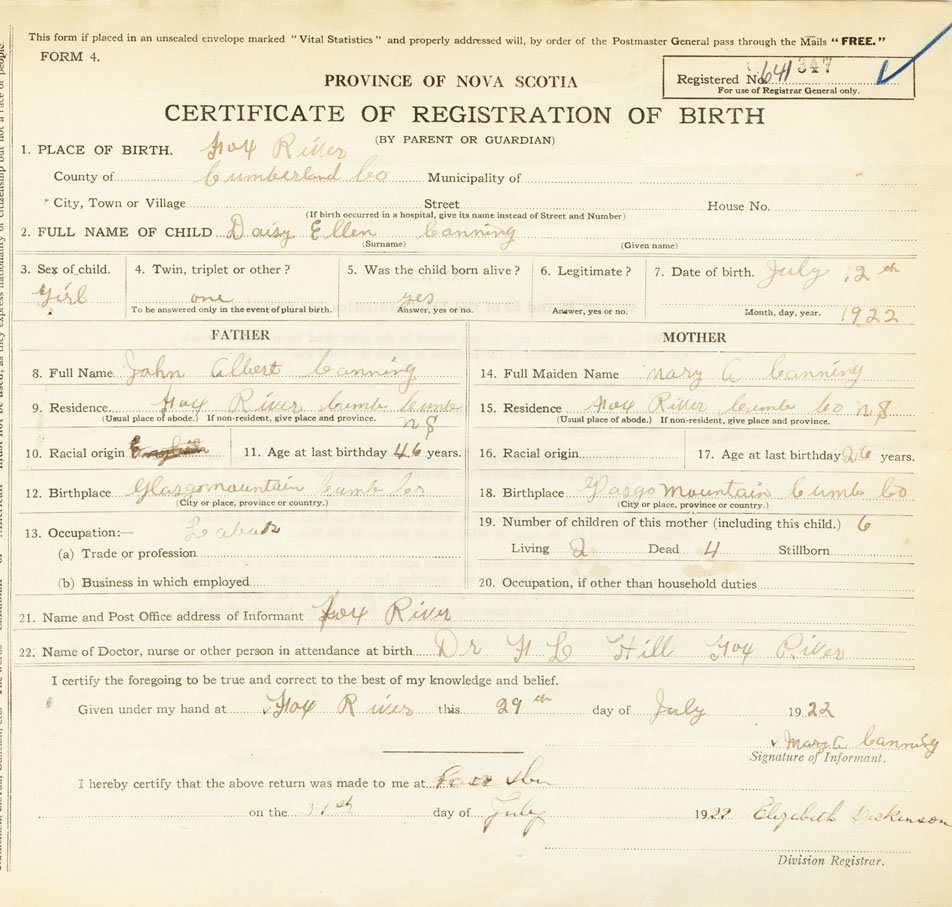 This form if placed in an unsealed envelope marked "Vital Statistics" and properly addressed will, by order of the Postmaster General pass through the Mails "FREE."
FORM 4.
Registered No. 641 347
For use of Registrar General only.
PROVINCE OF NOVA SCOTIA
CERTIFICATE OF REGISTRATION OF BIRTH
(BY PARENT OR GUARDIAN)
1. PLACE OF BIRTH. Fox River
County of Cumberland Co Municipality of
City, Town or Village Street House No.
(If birth occurred in a hospital, give its name instead of Street and Number)
2. FULL NAME OF CHILD Daisy Ellen Canning
(Surname) (Given name)
3. Sex of child. 4. Twin, triplet or other? 5. Was the child born alive? 6. Legitimate? 7. Date of birth. July 12th
Girl one yes
To be answered only in the event of plural birth. Answer, yes or no. Answer, yes or no. Month, day, year. 1922
FATHER MOTHER
8. Full Name John Albert Canning 14. Full Maiden Name Mary A Canning
9. Residence Fox River Cumb Cumb 15. Residence Fox River Cumb Co N S
(Usual place of abode.) If non-resident, give place and province. N S (Usual place of abode.) If non-resident, give place and province.
10. Racial origin 11. Age at last birthday 46 years. 16. Racial origin 17. Age at last birthday 26 years.
12. Birthplace Glasgo mountain Cumb Co 18. Birthplace Glasgo Mountain Cumb Co
(City or place, province or country.) (City or place, province or country.)
13. Occupation:— 19. Number of children of this mother (including this child.) 6
(a) Trade or profession Living 2 Dead 4 Stillborn
(b) Business in which employed 20. Occupation, if other than household duties
21. Name and Post Office address of Informant Fox River
22. Name of Doctor, nurse or other person in attendance at birth Dr F L Hill Fox River
I certify the foregoing to be true and correct to the best of my knowledge and belief.
Given under my hand at Fox River this 29th day of July 1922
Mary A Canning
Signature of Informant.
I hereby certify that the above return was made to me at
on the 31st day of July 1922 Elizabeth Dickinson
Division Registrar.